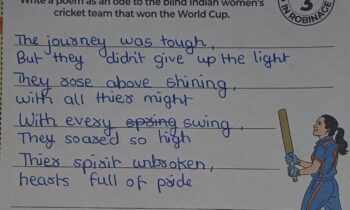 Write a poem as an ode to the blind Indian women's
cricket team that won the World Cup.
3
IN ROBINAGE
The journey was tough,
But they didn't give up the light
They rose above shining,
with all thier might
With every spring swing,
They soared so high
Thier spirit unbroken,
hearts full of pride